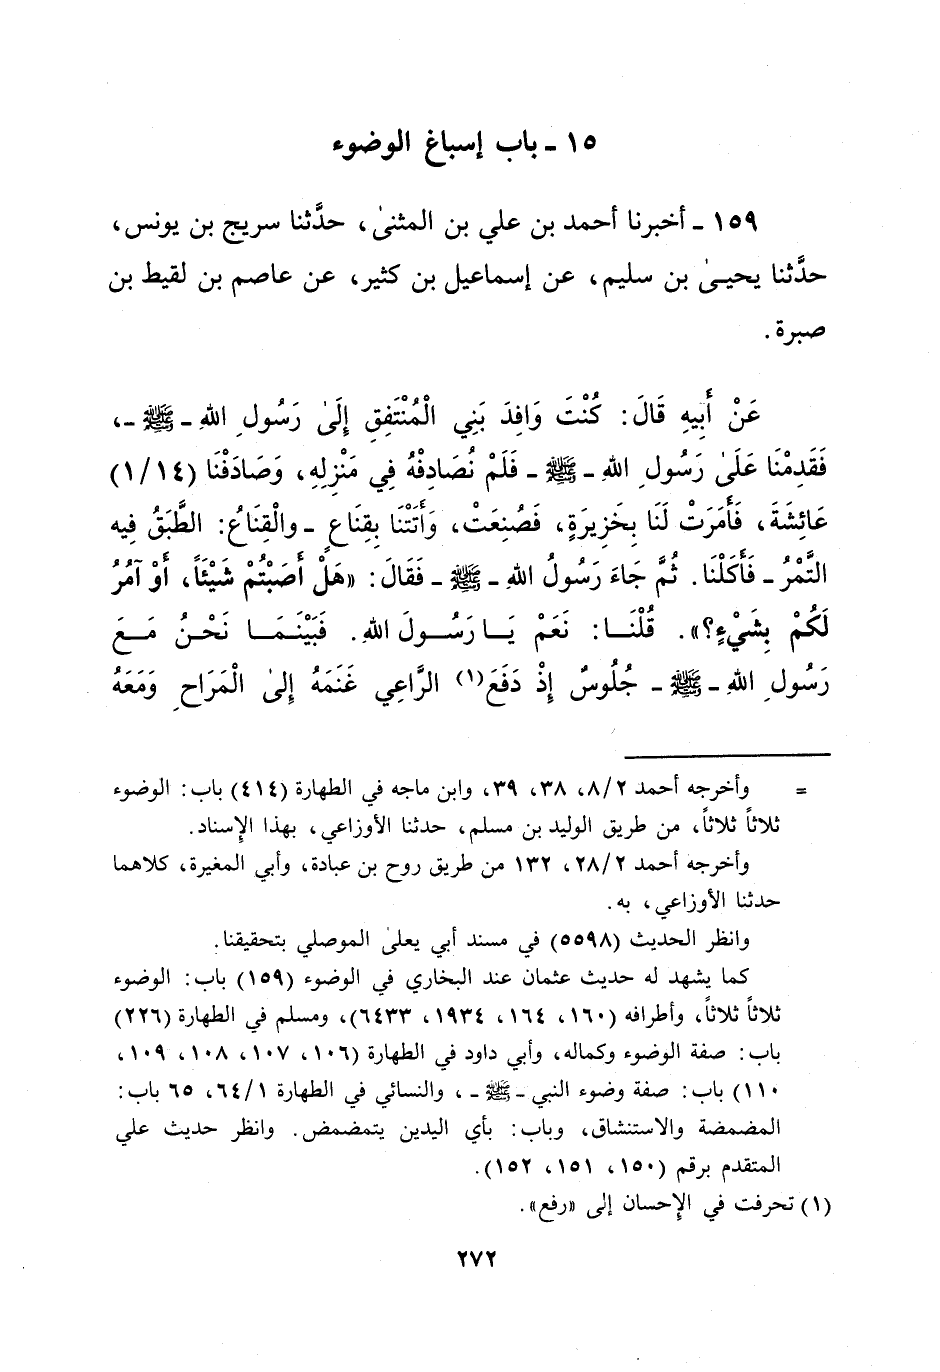 ١٥ ـ باب إسباغ الوضوء
١٥٩ ـ أخبرنا أحمد بن علي بن المثنىٰ، حدَّثنا سريج بن يونس،
حدَّثنا يحيـىٰ بن سليم، عن إسماعيل بن كثير، عن عاصم بن لقيط بن
صبرة.
عَنْ أَبِيهِ قَالَ: كُنْتُ وَافِدَ بَنِي الْمُنْتَفِقِ إِلَىٰ رَسُولِ اللهِ ـ ﷺ ـ،
فَقَدِمْنَا عَلَىٰ رَسُولِ اللهِ ـ ﷺ ـ فَلَمْ نُصَادِفْهُ فِي مَنْزِلِهِ، وَصَادَفْنَا (١/١٤)
عَائِشَةَ، فَأَمَرَتْ لَنَا بِخَزِيرَةٍ، فَصُنِعَتْ، وَأَتَتْنَا بِقِنَاعٍ ـ والْقِنَاعُ: الطَّبَقُ فِيهِ
التَّمْرُ ـ فَأَكَلْنَا. ثُمَّ جَاءَ رَسُولُ اللهِ ـ ﷺ ـ فَقَالَ: «هَلْ أَصَبْتُمْ شَيْئَاً، أَوْ آمُرُ
لَكُمْ بِشَيْءٍ؟». قُلْنَـا: نَعَمْ يَـا رَسُـولَ اللهِ. فَبَيْنَمَـا نَحْنُ مَـعَ
رَسُولِ اللهِ ـ ﷺ ـ جُلُوسٌ إِذْ دَفَعَ(١) الرَّاعِي غَنَمَهُ إِلىٰ الْمَرَاحِ وَمَعَهُ
= وأخرجه أحمد ٨/٢، ٣٨، ٣٩، وابن ماجه في الطهارة (٤١٤) باب: الوضوء
ثلاثاً ثلاثاً، من طريق الوليد بن مسلم، حدثنا الأوزاعي، بهذا الإسناد.
وأخرجه أحمد ٢٨/٢، ١٣٢ من طريق روح بن عبادة، وأبي المغيرة، كلاهما
حدثنا الأوزاعي، به.
وانظر الحديث (٥٥٩٨) في مسند أبي يعلىٰ الموصلي بتحقيقنا.
كما يشهد له حديث عثمان عند البخاري في الوضوء (١٥٩) باب: الوضوء
ثلاثاً ثلاثاً، وأطرافه (١٦٠، ١٦٤، ١٩٣٤، ٦٤٣٣)، ومسلم في الطهارة (٢٢٦)
باب: صفة الوضوء وكماله، وأبي داود في الطهارة (١٠٦، ١٠٧، ١٠٨، ١٠٩،
١١٠) باب: صفة وضوء النبي ـ ﷺ ـ، والنسائي في الطهارة ٦٤/١، ٦٥ باب:
المضمضة والاستنشاق، وباب: بأي اليدين يتمضمض. وانظر حديث علي
المتقدم برقم (١٥٠، ١٥١، ١٥٢).
(١) تحرفت في الإحسان إلى «رفع».
٢٧٢